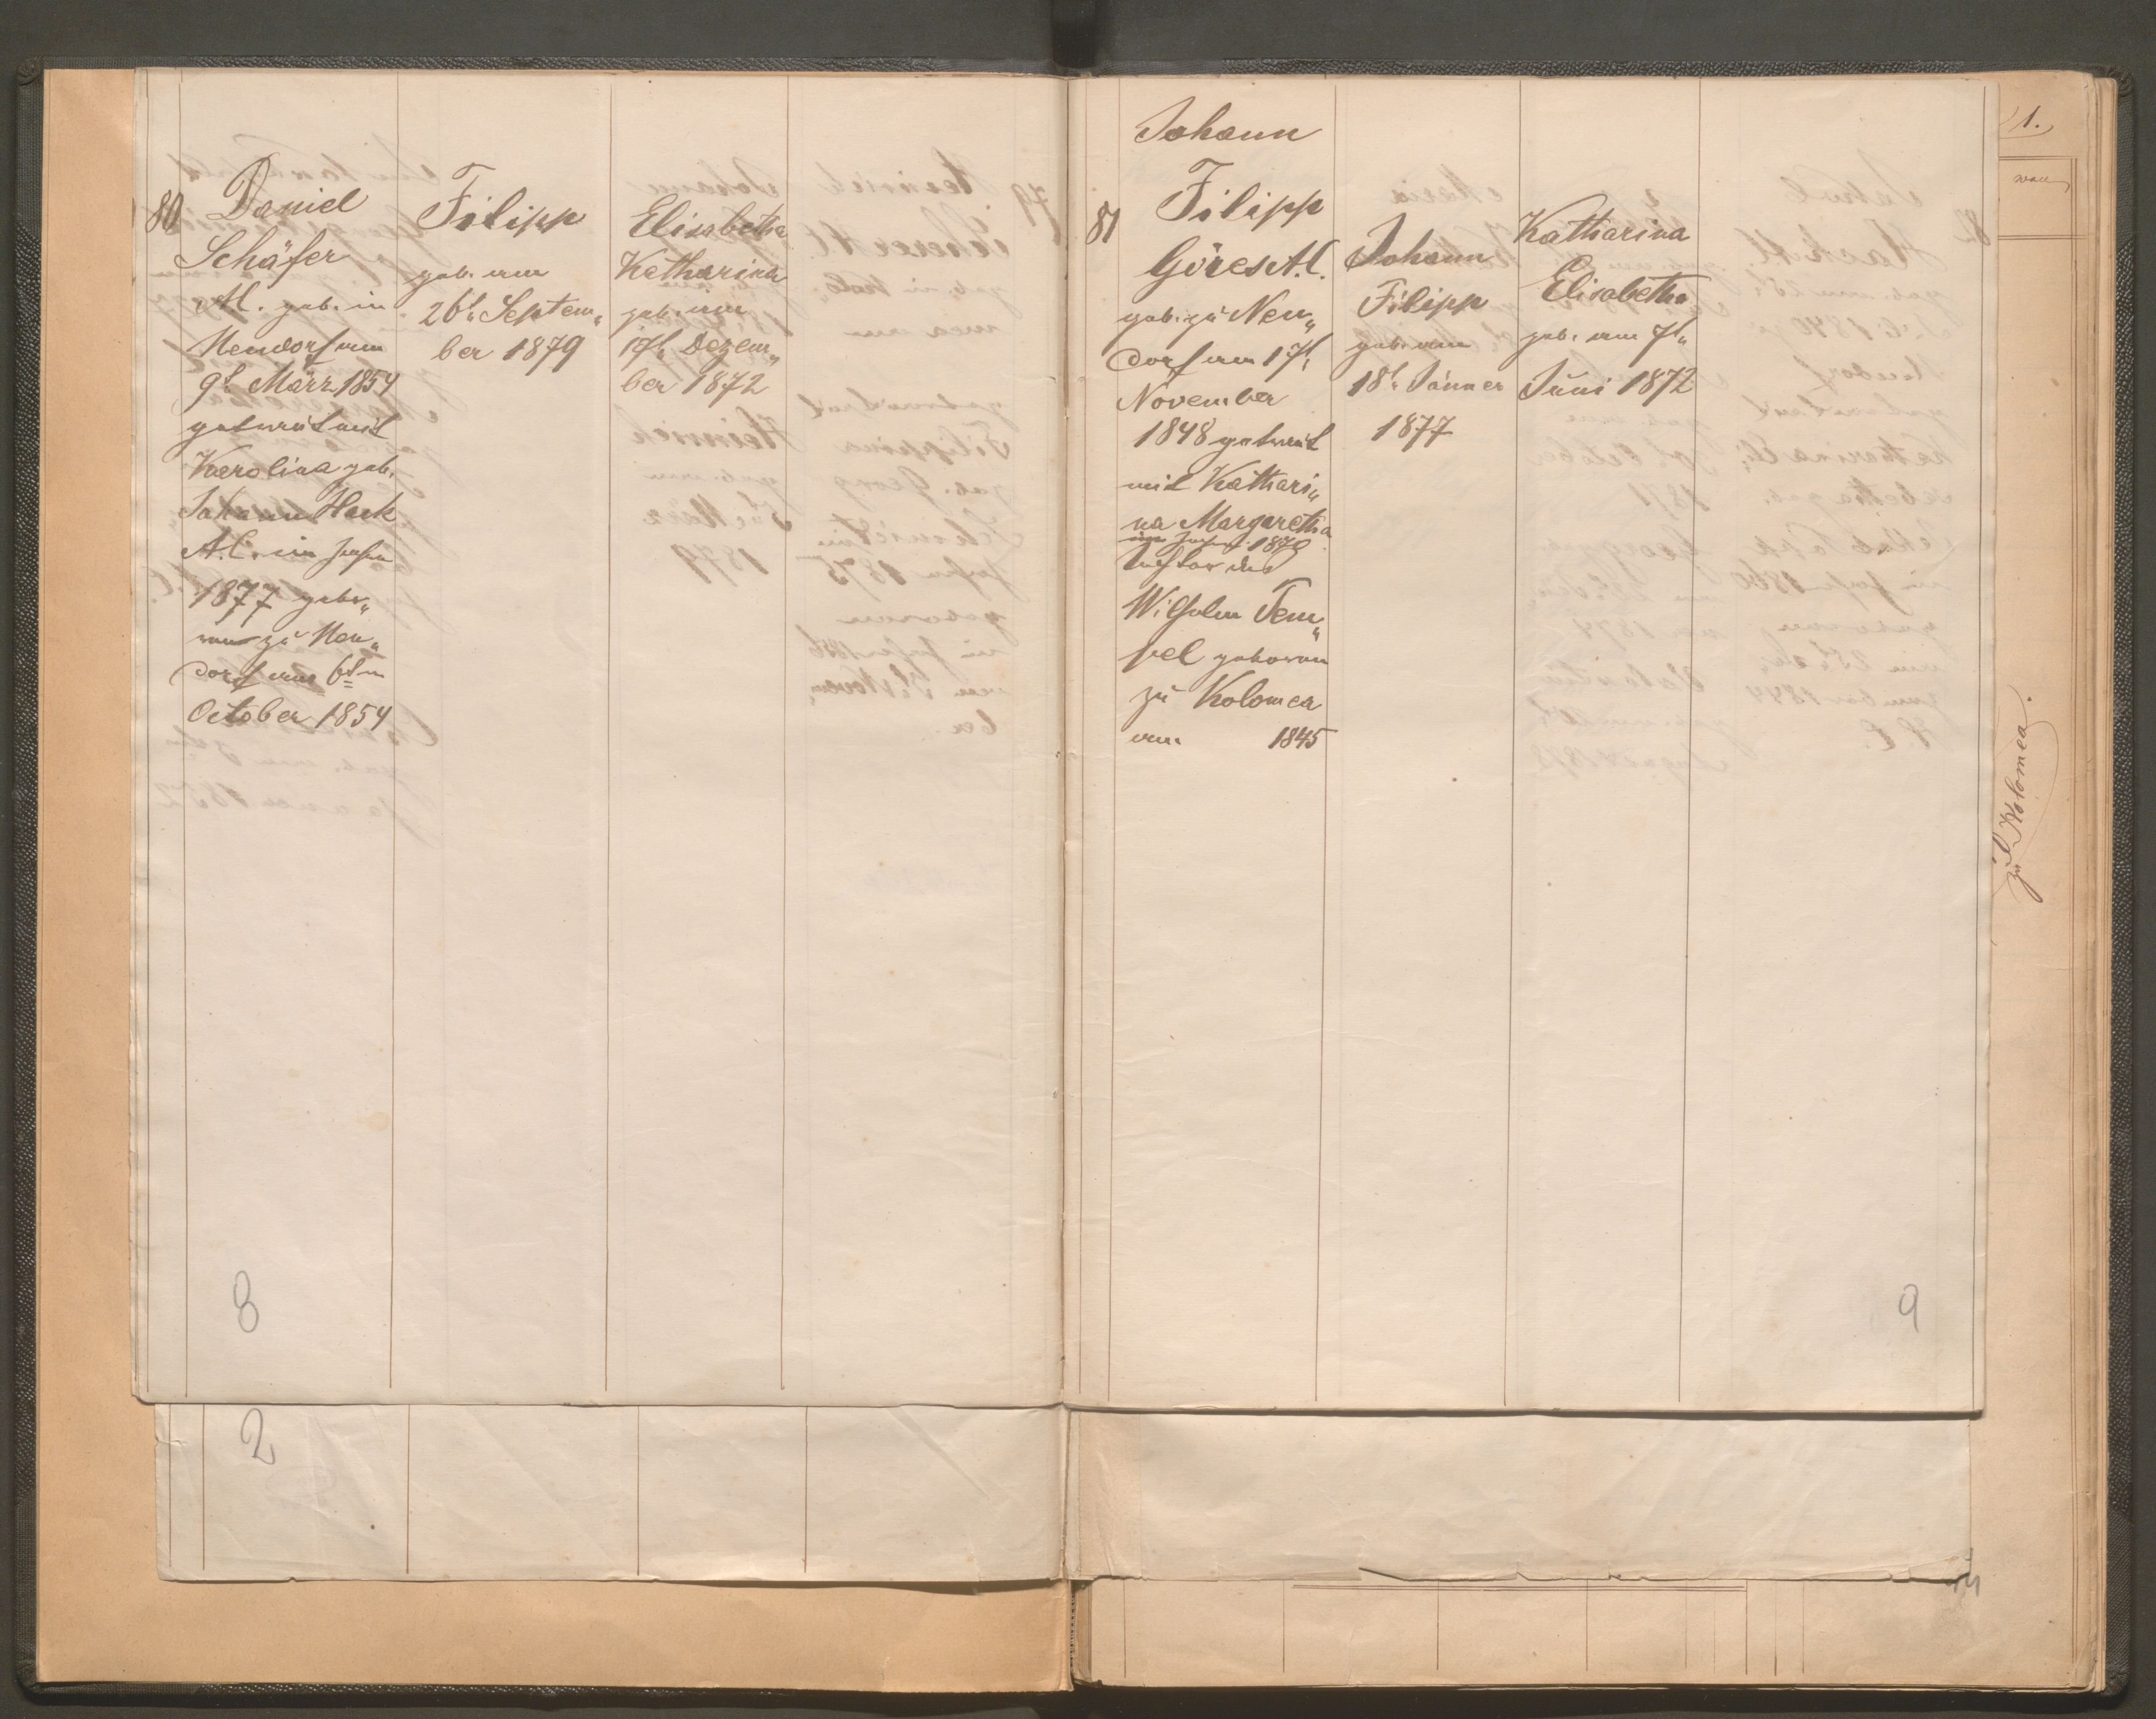 80
Daniel
Schäfer
A.C. geb. in
Neudorf am
9t. März 1854
getraut mit
Karolina geb.
Johann Hack
A.C. im Jahre
1877 gebo„
ren zu Neu„
dorf am 6ten
October 1854
Filipp
geb. am
26t„ Septem„
ber 1879
Elisabetha
Katharina
geb. am
17t„ Dezem„
ber 1872
8
2
81
Johann
Filipp
Göres A.C.
geb. zu Neu„
dorf am 17t
November
1848 getraut
mit Kathari„
na Margaretha
im Jahre 1870
Tochter des
Wilhelm Tem„
pel geboren
zu Kolomea
am 1845
Johann
Filipp
geb. am
18t„ Jänner
1877
Katharina
Elisabetha
geb. am 7t„
Juni 1872
9
1.
zu Kolomea.